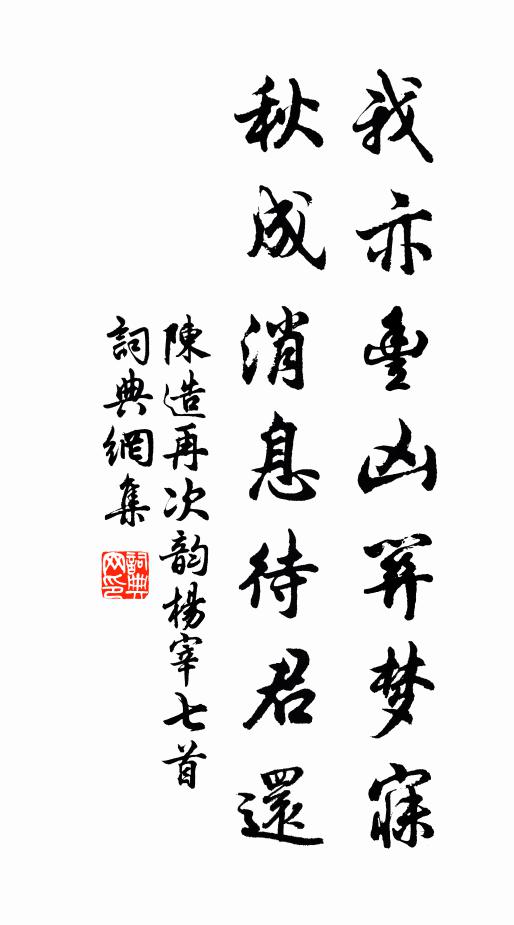 我亦豐凶関梦寐
秋成消息待君還
陳造再次韵楊宰七首
詞典網集
詞典网印